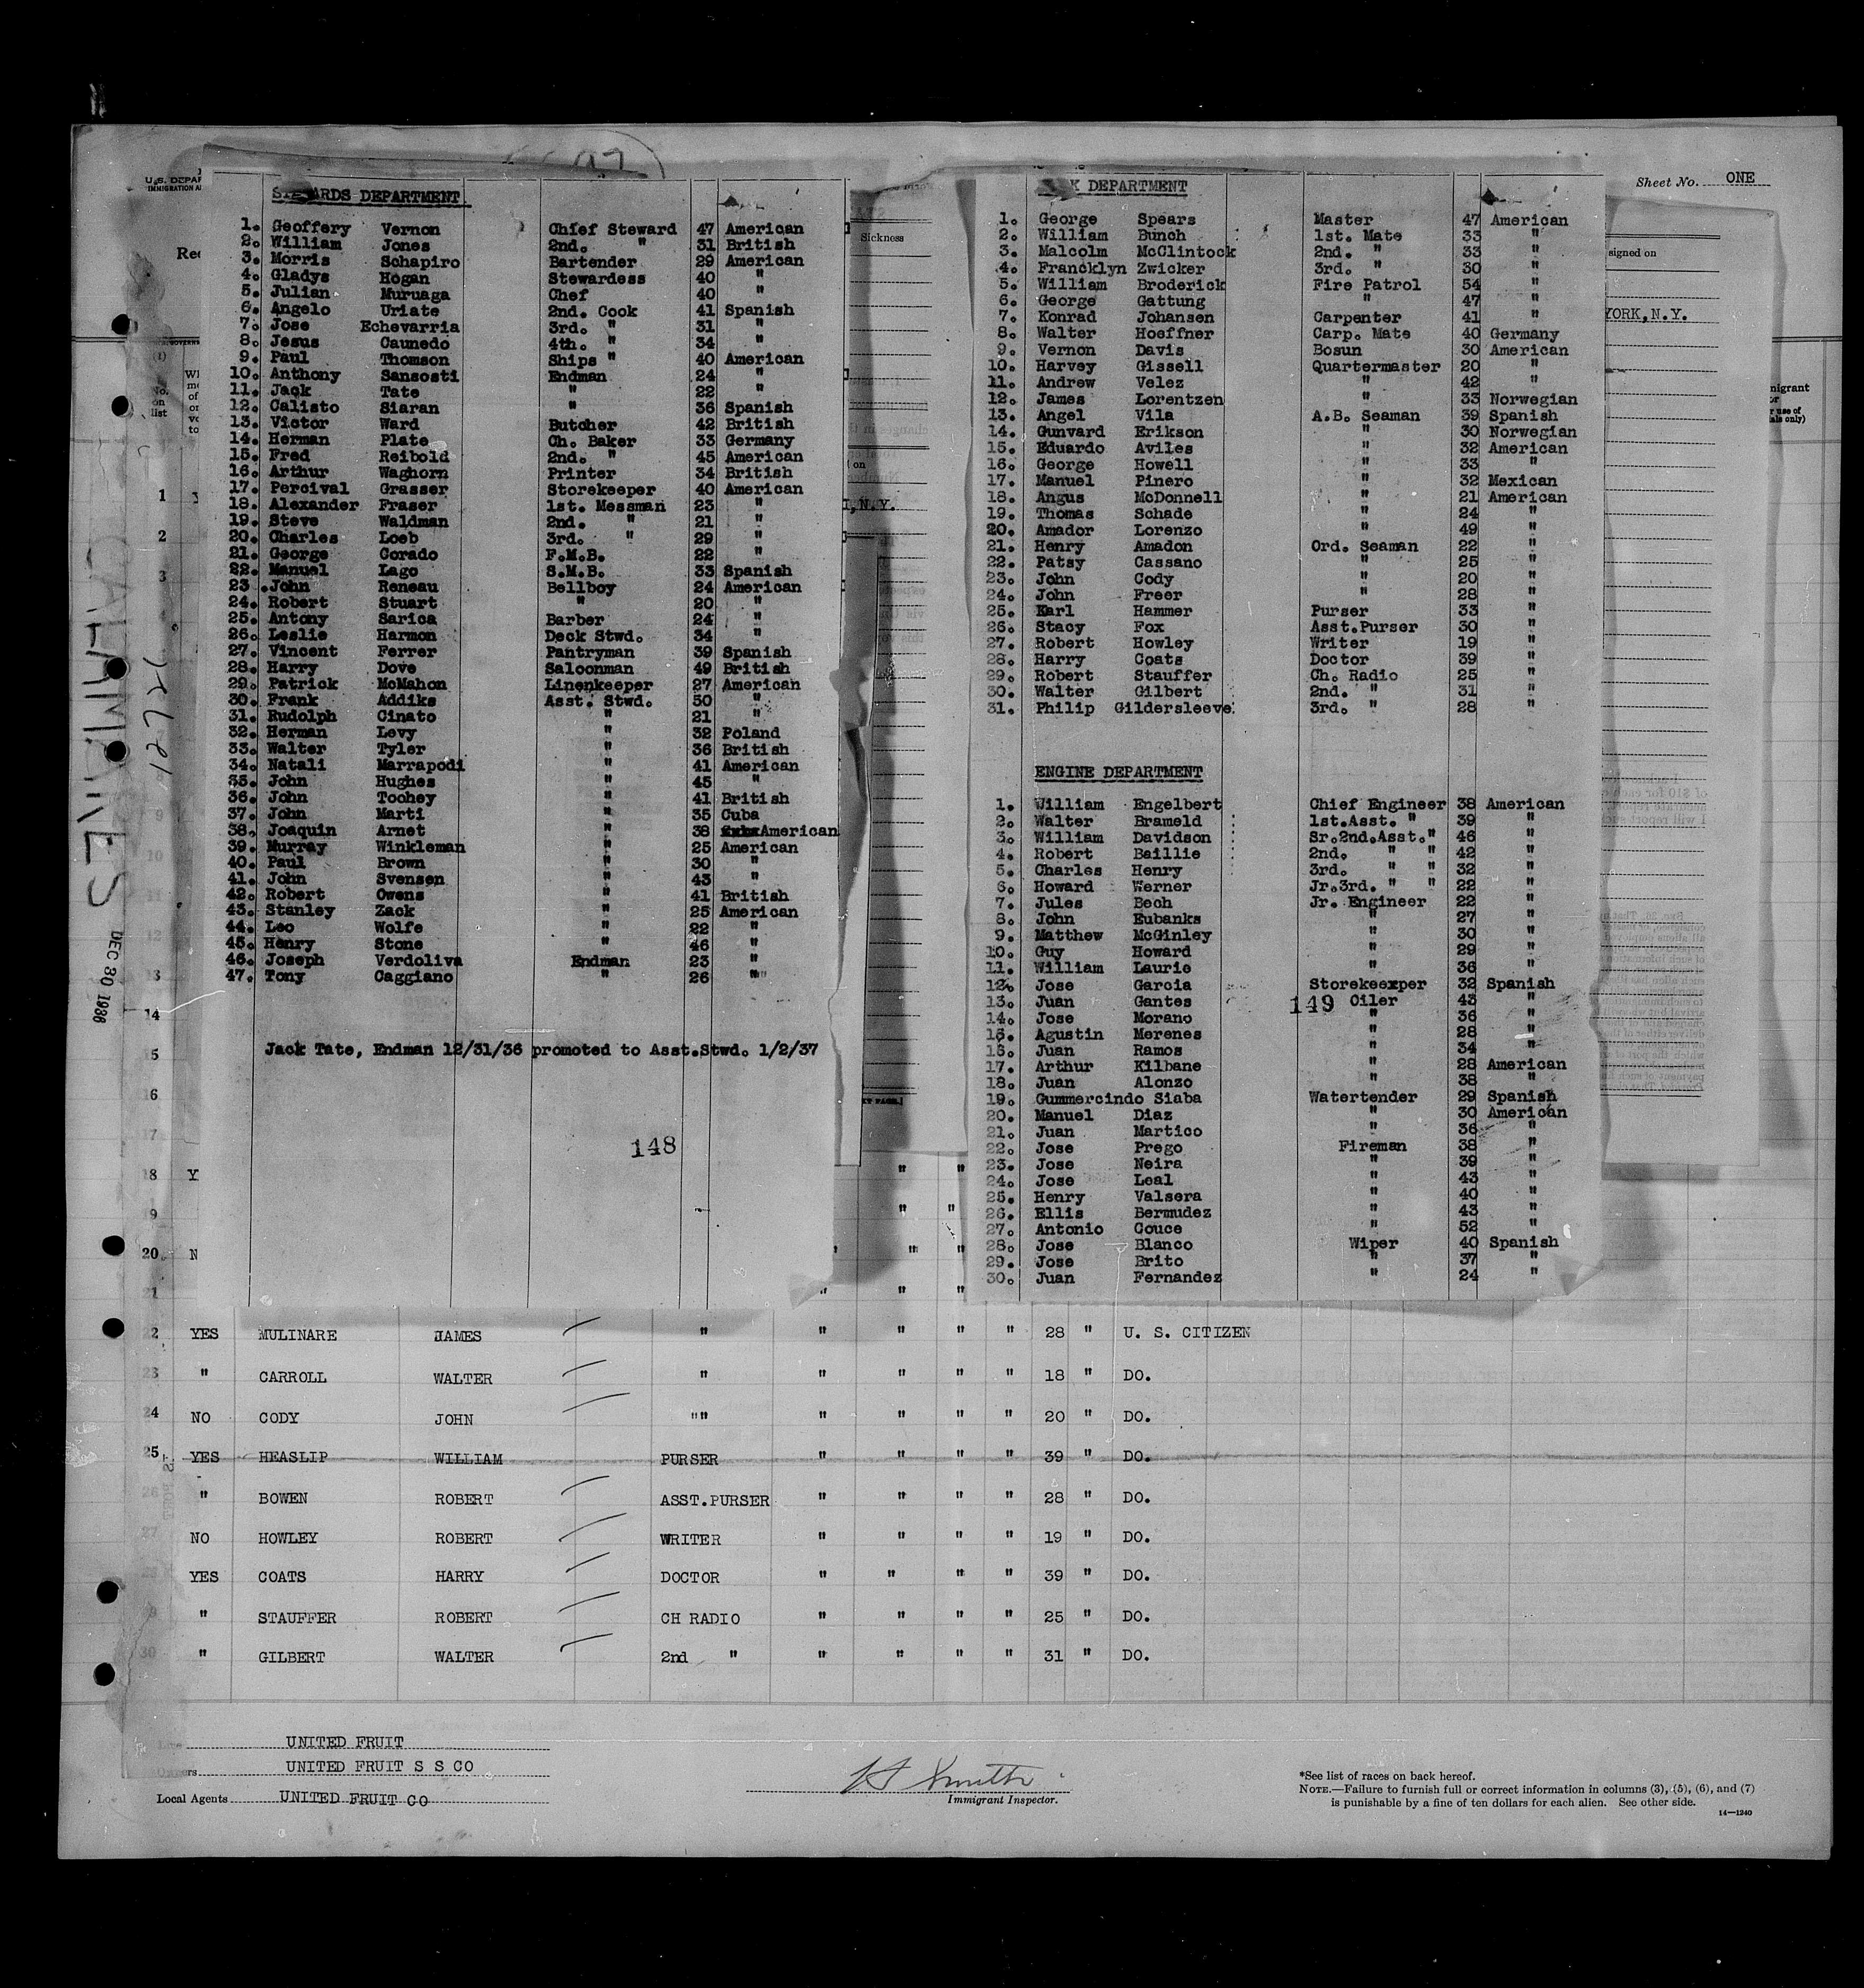 U.S. DEPAR
IMMIGRATION A
Sheet No. ONE
STEWARDS DEPARTMENT
1. Geoffery Vernon Chief Steward 47 American
2. William Jones 2nd. " 31 British
3. Morris Schapiro Bartender 29 American
4. Gladys Hogan Stewardess 40 "
5. Julian Muruaga Chef 40 "
6. Angelo Uriate 2nd. Cook 41 Spanish
7. Jose Echevarria 3rd. " 31 "
8. Jesus Caunedo 4th. " 34 "
9. Paul Thomson Ships " 40 American
10. Anthony Sansosti Endman 24 "
11. Jack Tate " 22 "
12. Calisto Siaran " 36 Spanish
13. Victor Ward Butcher 42 British
14. Herman Plate Ch. Baker 33 Germany
15. Fred Reibold 2nd. " 45 American
16. Arthur Waghorn Printer 34 British
17. Percival Grasser Storekeeper 40 American
18. Alexander Fraser 1st. Messman 23 "
19. Steve Waldman 2nd. " 21 "
20. Charles Loeb 3rd. " 29 "
21. George Corado F.M.B. 22 "
22. Manuel Lago S.M.B. 33 Spanish
23. John Reneau Bellboy 24 American
24. Robert Stuart " 20 "
25. Antony Sarica Barber 24 "
26. Leslie Harmon Deck Stwd. 34 "
27. Vincent Ferrer Pantryman 39 Spanish
28. Harry Dove Saloonman 49 British
29. Patrick McMahon Linenkeeper 27 American
30. Frank Addiks Asst. Stwd. 50 "
31. Rudolph Cinato " 21 "
32. Herman Levy " 32 Poland
33. Walter Tyler " 36 British
34. Natali Marrapodi " 41 American
35. John Hughes " 45 "
36. John Toohey " 41 British
37. John Marti " 35 Cuba
38. Joaquin Arnet " 38 American
39. Murray Winkleman " 25 American
40. Paul Brown " 30 "
41. John Svensen " 43 "
42. Robert Owens " 41 British
43. Stanley Zack " 25 American
44. Leo Wolfe " 22 "
45. Henry Stone " 46 "
46. Joseph Verdoliva Endman 23 "
47. Tony Caggiano " 26 "
Jack Tate, Endman 12/31/36 promoted to Asst.Stwd. 1/2/37
148
Sickness
signed on
YORK, N.Y.
K DEPARTMENT
1. George Spears Master 47 American
2. William Bunch 1st. Mate 33 "
3. Malcolm McClintock 2nd. " 33 "
4. Francklyn Zwicker 3rd. " 30 "
5. William Broderick Fire Patrol 54 "
6. George Gattung " 47 "
7. Konrad Johansen Carpenter 41 "
8. Walter Hoeffner Carp. Mate 40 Germany
9. Vernon Davis Bosun 30 American
10. Harvey Gissell Quartermaster 20 "
11. Andrew Velez " 42 "
12. James Lorentzen " 33 Norwegian
13. Angel Vila A.B. Seaman 39 Spanish
14. Gunvard Erikson " 30 Norwegian
15. Eduardo Aviles " 32 American
16. George Howell " 33 "
17. Manuel Pinero " 32 Mexican
18. Angus McDonnell " 21 American
19. Thomas Schade " 24 "
20. Amador Lorenzo " 49 "
21. Henry Amadon Ord. Seaman 22 "
22. Patsy Cassano " 25 "
23. John Cody " 20 "
24. John Freer " 28 "
25. Earl Hammer Purser 33 "
26. Stacy Fox Asst.Purser 30 "
27. Robert Howley Writer 19 "
28. Harry Coats Doctor 39 "
29. Robert Stauffer Ch. Radio 25 "
30. Walter Gilbert 2nd. " 31 "
31. Philip Gildersleeve 3rd. " 28 "
ENGINE DEPARTMENT
1. William Engelbert Chief Engineer 38 American
2. Walter Brameld 1st.Asst. " 39 "
3. William Davidson Sr.2nd.Asst." 46 "
4. Robert Baillie 2nd. " " 42 "
5. Charles Henry 3rd. " " 32 "
6. Howard Werner Jr.3rd. " " 22 "
7. Jules Bech Jr. Engineer 22 "
8. John Eubanks " 27 "
9. Matthew McGinley " 30 "
10. Guy Howard " 29 "
11. William Laurie " 36 "
12. Jose Garcia Storekeexper 32 Spanish
13. Juan Gantes Oiler 43 "
149
14. Jose Morano " 36 "
15. Agustin Merenes " 28 "
16. Juan Ramos " 34 "
17. Arthur Kilbane " 28 American
18. Juan Alonzo " 38 "
19. Gummercindo Siaba Watertender 29 Spanish
20. Manuel Diaz " 30 American
21. Juan Martico " 36 "
22. Jose Prego Fireman 38 "
23. Jose Neira " 39 "
24. Jose Leal " 43 "
25. Henry Valsera " 40 "
26. Ellis Bermudez " 43 "
27. Antonio Couce " 52 "
28. Jose Blanco Wiper 40 Spanish
29. Jose Brito " 37 "
30. Juan Fernandez " 24 "
CALAMARES
DEC 30 1936
22 YES MULINARE JAMES " " " " " 28 " U. S. CITIZEN
23 " CARROLL WALTER " " " " " 18 " DO.
24 NO CODY JOHN "" " " " " 20 " DO.
25 YES HEASLIP WILLIAM PURSER " " " " 39 " DO.
26 " BOWEN ROBERT ASST.PURSER " " " " 28 " DO.
27 NO HOWLEY ROBERT WRITER " " " " 19 " DO.
YES COATS HARRY DOCTOR " " " " 39 " DO.
9 " STAUFFER ROBERT CH RADIO " " " " 25 " DO.
30 " GILBERT WALTER 2nd " " " " " 31 " DO.
UNITED FRUIT
Owners UNITED FRUIT S S CO
Local Agents UNITED FRUIT CO
Smith
Immigrant Inspector.
*See list of races on back hereof.
NOTE.—Failure to furnish full or correct information in columns (3), (5), (6), and (7)
is punishable by a fine of ten dollars for each alien. See other side.
14—1240